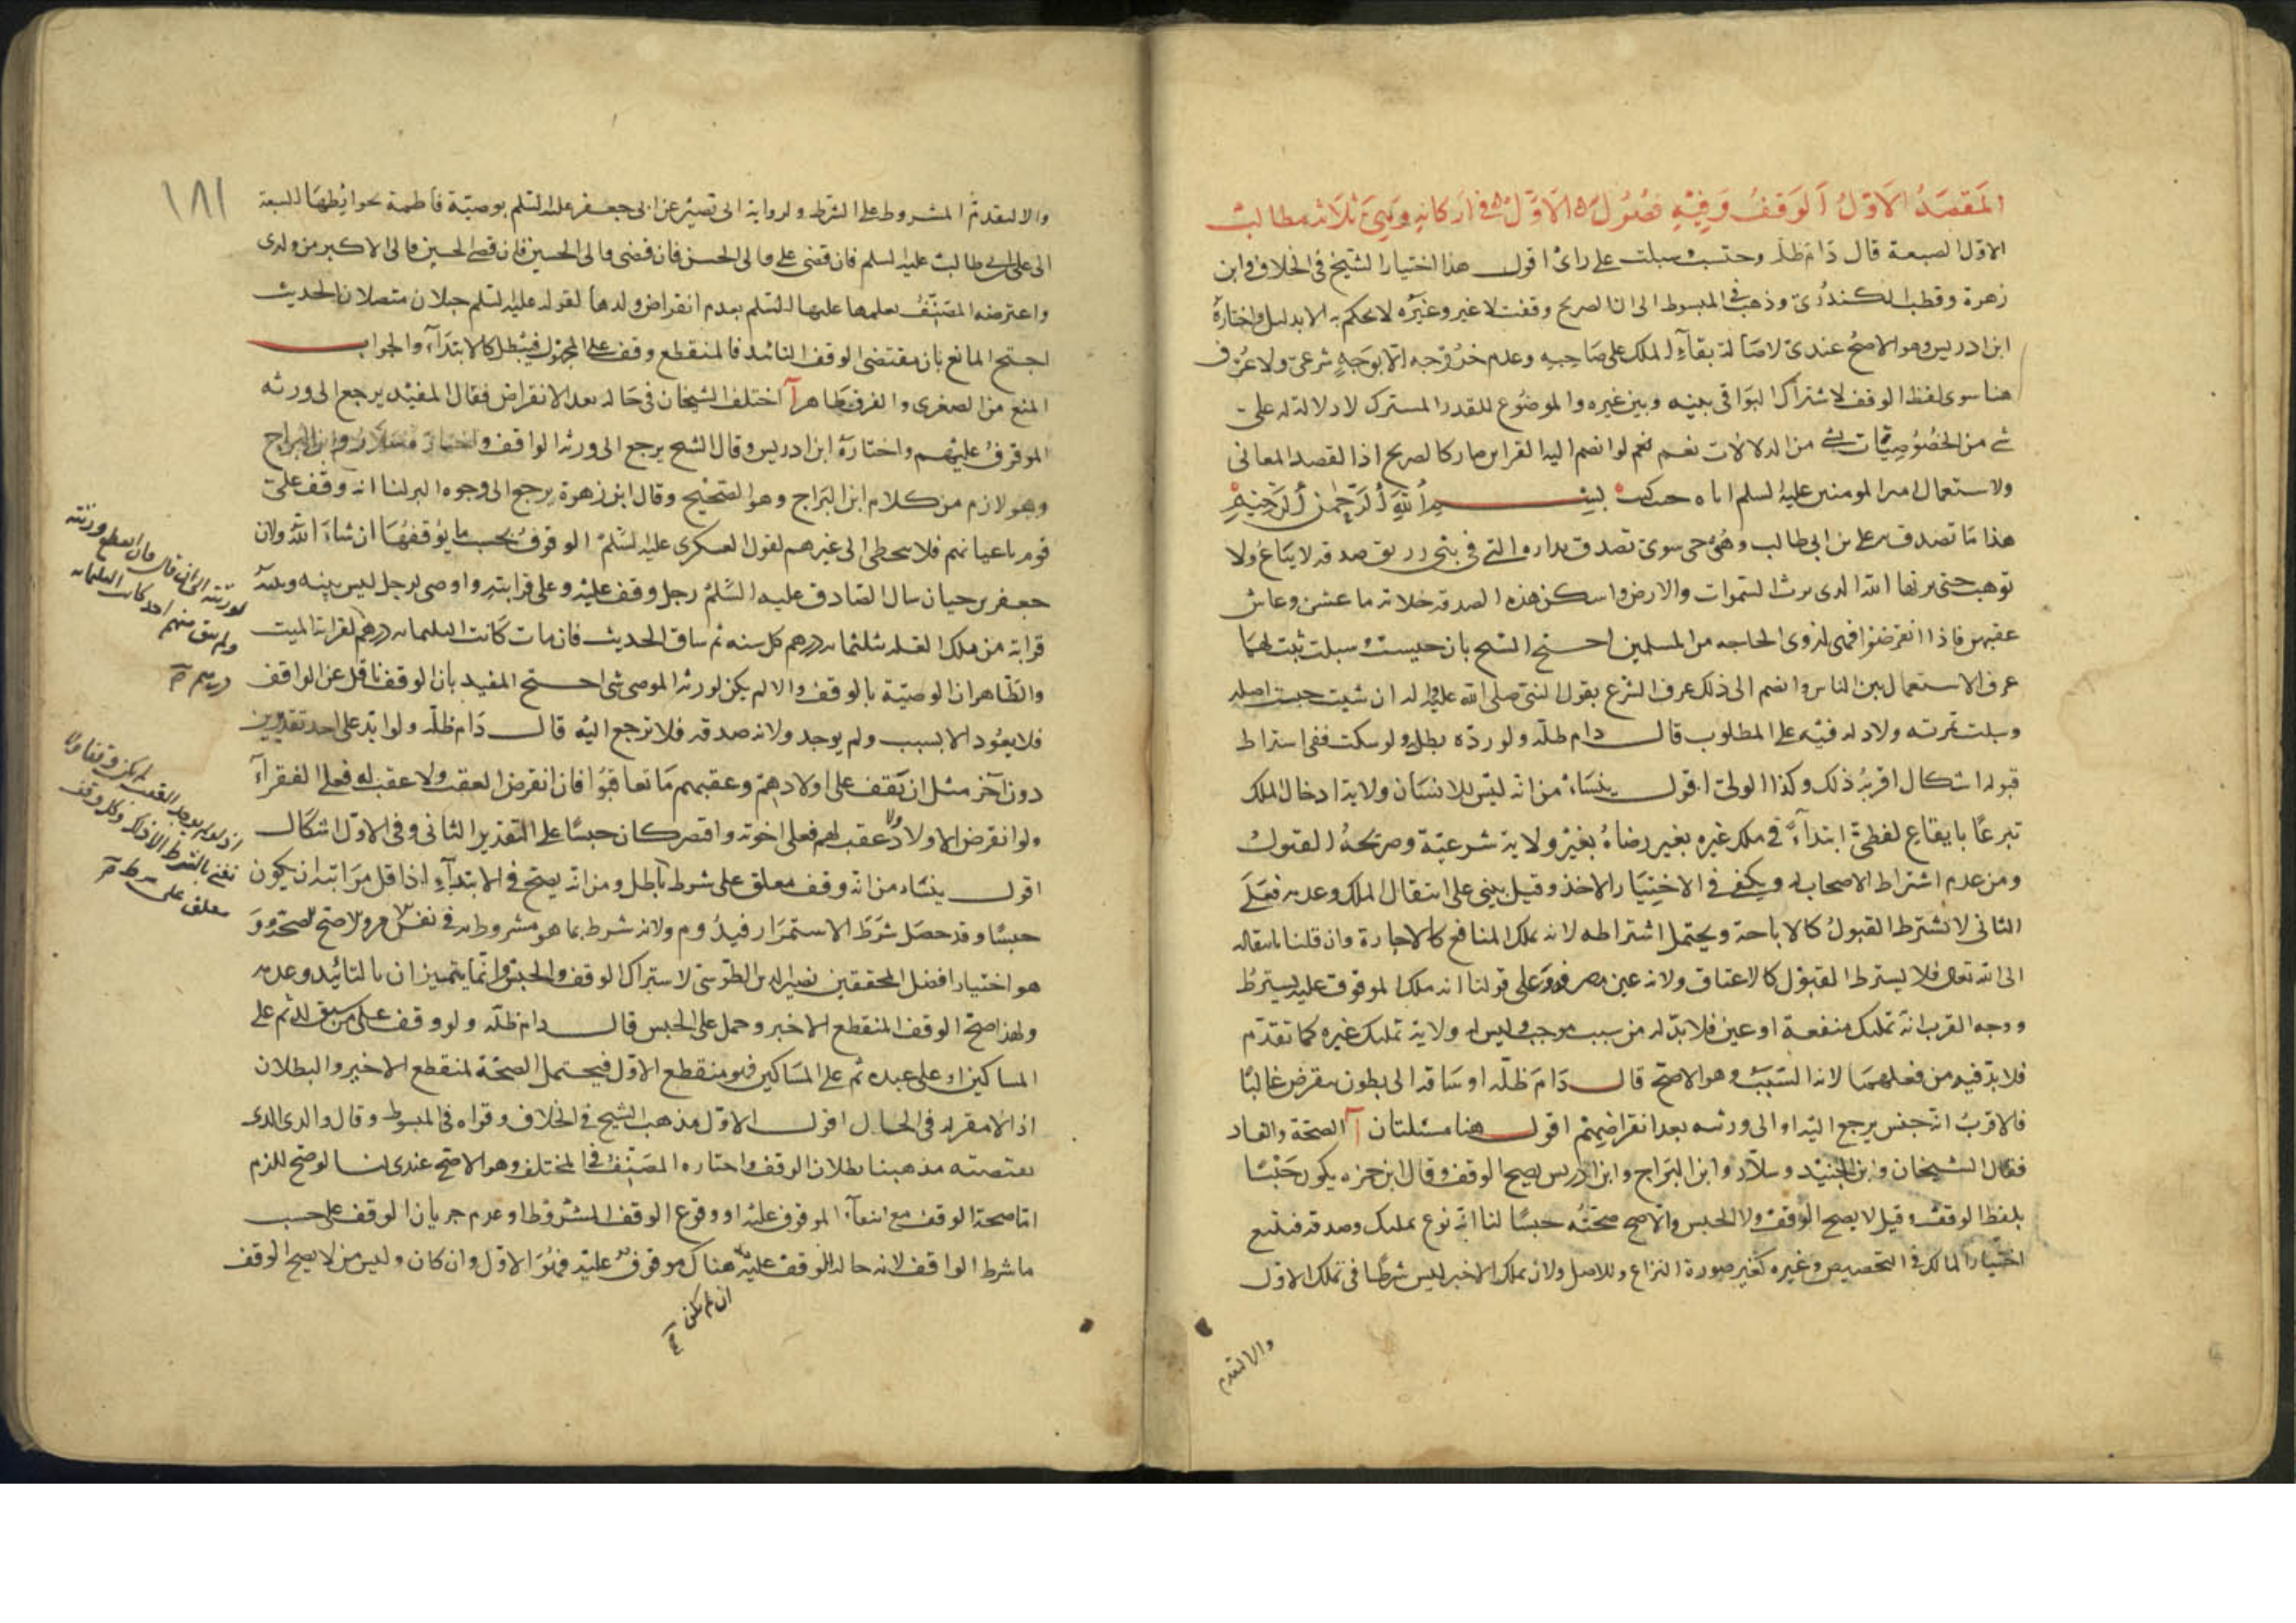 المَقصَدُ الاَوّلُ اَلوَقفُ وَفِيْهِ فصُوُلٌ الاَوّلُ في اَركانِهِ وَهِيَ ثلَاثه مطالبْ
الاوّل الصيغة قال دَام ظلّه وحبّست وسبلت على رائ اقول هذا اختيار الشيخ في الخلاف وابن
زهرة وقطب الدين الكندُري وذهب في المبسوط الى ان الصريح وقفت لا غير وغيره لا يحكم به الا بدليل واختارهُ
ابن ادريس وهو الاصحّ عندي لاصَالة بقآء الملك على صَاحبِهِ وعدم خرُوجه الّا بوَجهٍ شرعي ولا عُرف
هنا سوى لفظ الوقف لاشتراك البَواقي بينه وبين غيره والموضُوع للقدر المشترك لا دلالة له على
شئ من الخصُوُصِيّات بشئ من الدلالات نعم لو انضم اليه القراين صار كالصريح اذا القصد المعاني
ولاستعمال امير المومنين عليه السلم اياه حيث كتب بسم الله الرحمن الرحيم
هذا مَا تصدق به علي بن ابي طالب وهُوَ حي سوي تصدق بداره التي في بني زريق صدقه لا تباعُ ولا
توهب حتى يرثها الله الذي يرث السّموات والارض واسكن هذه الصدقه خلاته ما عشن وعاش
عقبهن فاذا انقرضوا فهي لذوي الحاجه من المسلمين احتج الشيخ بان حبست وسبلت ثبت لهمَا
عرف الاستعمال بين الناس وانضم الى ذلك عرف الشرع بقول النبي صلى الله عليه واله ان شيت حبست اصله
وسبلت ثمرته ولا دلالة فيه على المطلوب قال دام ظلّه ولو ردّه بطل ولو سكت ففي اشتراط
قبوله اشكال اقربُهُ ذلك وكذا الولي اقول ينشَاء من انّه ليس للانسَان ولاية ادخال الملك
تبرعًا بايقاع لفظي ابتدآءً في ملك غيره بغير رضاهُ بغير ولاية شرعيّة وصريحهُ القبول
ومن عدم اشتراط الاصحاب له ويكفي في الاختيَار الاخذ وقيل يبني على انتقال الملك وعدمه فعَلَى
الثاني لا يشترط القبولُ كالاباحة ويحتمل اشتراطه لانه يملك المنافع كالاجارة وان قلنا بانتقاله
الى الله تعالى فلا يشترط القبول كالاعتاق ولانه عين مصرفه وعلى قولنا انه ملك الموقوف عليه يشترط
ووجه القرب انّه تمليك منفعة او عين فلا بدّ له من سبب موجب وليس له ولاية تمليك غيره كما تقدّم
فلا بدّ فيه من فعلهمَا لانه السّبَبُ وهو الاصحّ قال دَامَ ظلّه او سَاقه الى بطون تنقرض غالبًا
فالاقربُ انّه حبس يرجع اليه او الى ورثته بعد انقراضهِم اقول هنا مسئلتان آ الصحّة والفساد
فقال الشيخان وابن الجُنيْد وسلّار وابن البَراج وابن ادريس يصح الوقف وقال ابن حمزه يكون حَبْسًا
بلفظ الوقف وقيل لا يصح الوقف ولا الحبس والاصح صحّتُه حبسًا لنا انّه نوع تمليك وصدقه فيتبع
اختيار المالك في التخصيص وغيره كغير صورة النزاع وللاصل ولان تملك الاخير ليس شرطًا في تملك الاوّل
والا لتقدم
١٨١
والا لتقدمُ المشروط على الشرط ولرواية ابي بصير عن ابي جعفر عليه السّلم بوصيّة فاطمة بحوايُطِهَا السبعة
الى علي بن ابي طالب عليه السلم فان قضى علي فالى الحسن فان قضى فالى الحسين فان قضى الحسين فالى الاكبر من ولدي
واعترضه المصَنّفُ بعلمها عليها السّلم بعدم انقراض ولدها لقوله عليه السّلم حبلان متصلان الحديث
احتج المانع بان مقتضى الوقف التائبد فالمنقطع وقف على المجهول فيَبْطل كالابتدَاء والجواب
المنع من الصغرى والفرق ظَاهر آ اختلف الشيخان في حاله بعد الانقراض فقال المفيْد يرجع الى ورثه
الموقوفُ عليْهم واختارَهُ ابن ادريس وقال الشيح يرجع الى ورثه الواقف واختاره سلّار وابن البراج
وهو لازم من كلام ابن البَراج وهو الصّحيح وقال ابن زهرة يرجع الى وجوه البر لنا انه وقف على
قوم باعيانهم فلا يتخطى الى غيرهم لقول العسكري عليه السّلم الوقوفُ بحسب ما يُوقفُهَا ان شَاءَ اللّهُ ولان
جعفر بن حيان سال الصّادق عليه السّلمُ رجل وقف عليْه وعلى قرابته واوصى لرجل ليس بينه وبينهُ
قرابة من ملك الغله بثلثمائه درهم كل سنه ثم ساق الحديث فان مات كَانت الثلثمائه درهم لقرابه الميت
والظّاهر ان الوصيّة بالوقف والا لم يكن لورثه الموصى شئ احتج المفيد بان الوقف ناقل عن الواقف
فلا يعُود الا بسبب ولم يوجد ولانه صدقه فلا ترجع اليْه قال دَام ظلّه ولو ابّد على احد تقديرين
دون آخر مثل ان يَقف على اولادهِم وعقبهم مَا تعاقبُوا فان انقرض العقب ولا عقب له فعلى الفقرآءِ
ولو انقرض الاولاد ولا عقب لهم فعلى اخوته واقتصر كان حبسًا على التقدير الثاني وفي الاوّل اشكال
اقول ينشاء من انّه وقف معلق على شرط باطل ومن انّه يصح في الابتدآءِ اذا قل مرَاتبه ان يكون
حبسًا وقد حصَل شرَطُ الاستمرَار فيدُوم ولانه شرط بما هو مشروط به في نفس الامر والاصح الصحّة وَ
هو اختيار افضل المحققين نصير الدين الطوسيّ لاشتراك الوقف والحبس وانّما يتميزان بالتائيد وعدمه
ولهذا صحّ الوقف المنقطع الاخير وحمل على الحبس قال دام ظلّه ولو وقف على من سيولد ثم على
المساكين او على عبده ثم على المسَاكين فهو منقطع الاوّل فيحتمل الصحّة لمنقطع الاخير والبطلان
اذ لا مقر له في الحال اقول الاوّل مذهب الشيخ في الخلاف وقواه في المبسوط وقال والذي الذي
يقتضيه مذهبنا بطلان الوقف واختاره المصَنّفُ في المختلف وهو الاصح عندي لنا لو صح للزم
امّا صحة الوقف مع انتفآء الموقوف عليه او وقوع الوقف المشرُوط او عدم جريان الوقف على حسب
ما شرط الواقف لانه حالة الوقف عليه هناك موقوف عليْه فهُوَ الاوّل وان كان وليس من لا يصح الوقف
ان لم يكن